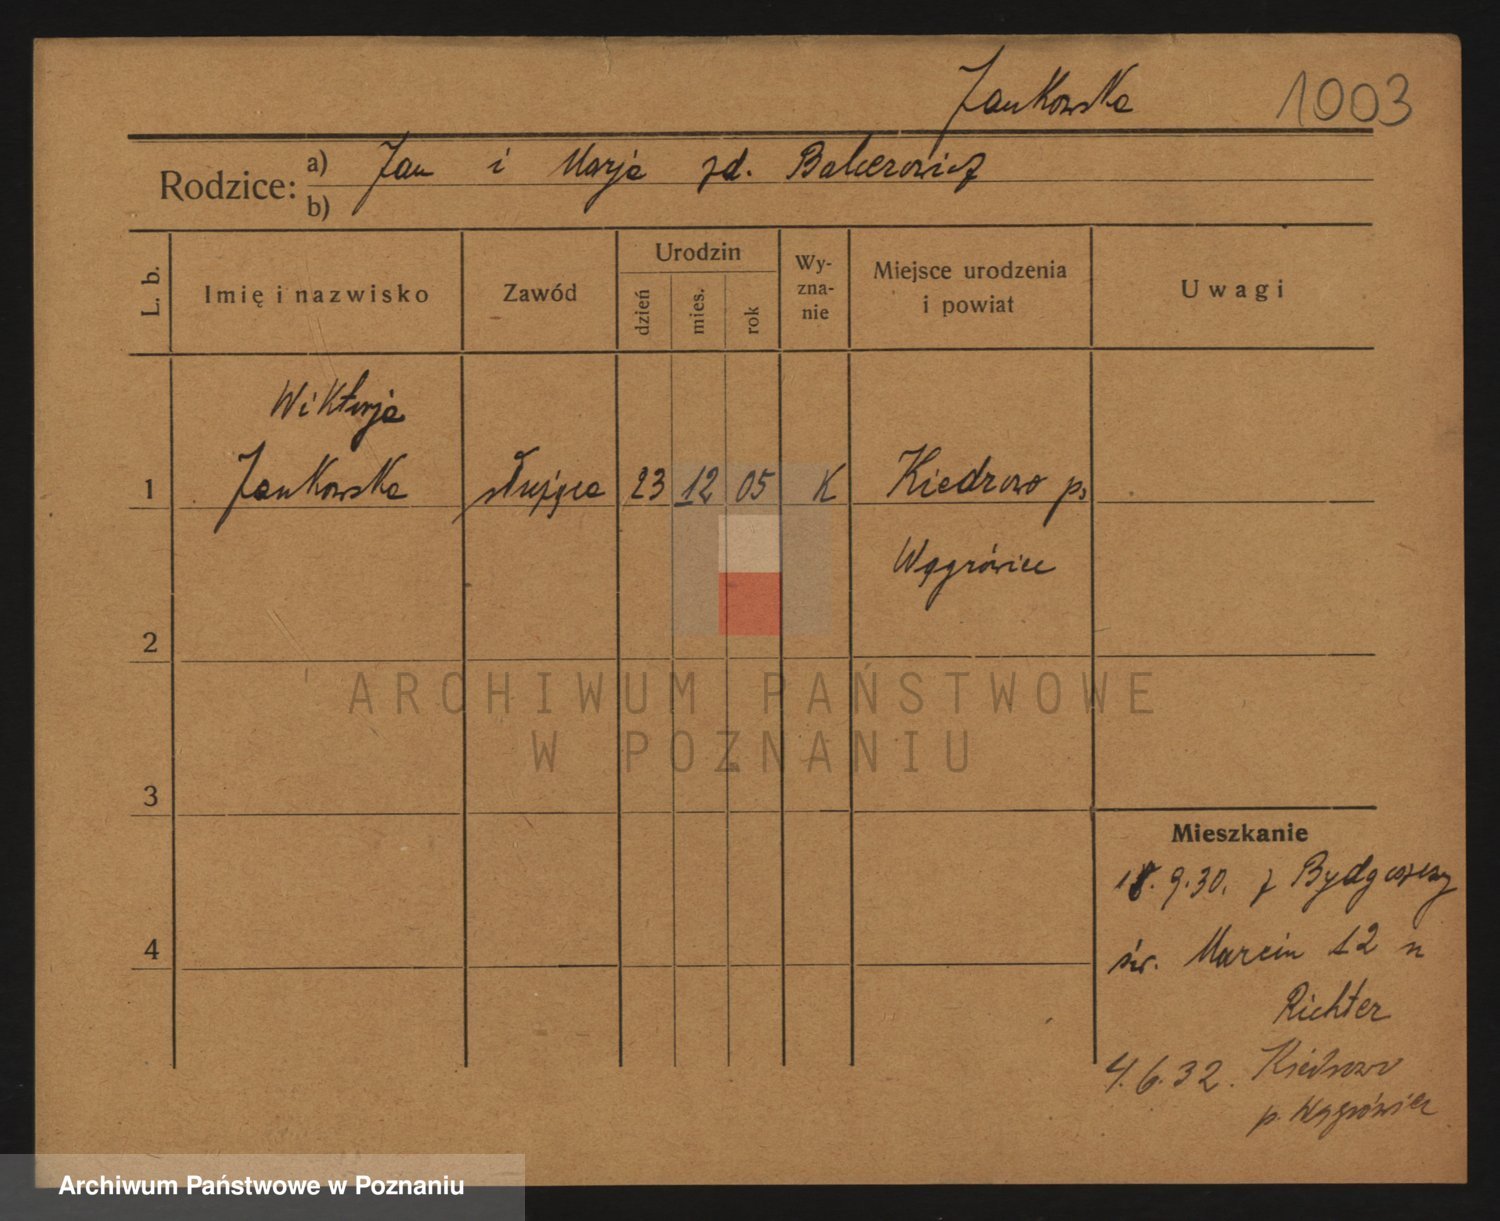 Jankowska 1003
Rodzice: a) Jan i Marja zd. Balcerowicz
b)
L. b.
Imię i nazwisko
Zawód
Urodzin
dzień
mies.
rok
Wy-
zna-
nie
Miejsce urodzenia
i powiat
Uwagi
Wiktorja
1 Jankowska służąca 23 12 05 K Kiedrowo p.
Wągrówiec
2
ARCHIWUM PAŃSTWOWE
W POZNANIU
3
Mieszkanie
18.9.30. z Bydgoszczy
4
św. Marcin 12 u
Richter
4.6.32. Kiedrowo
p. Wągrówiec
Archiwum Państwowe w Poznaniu